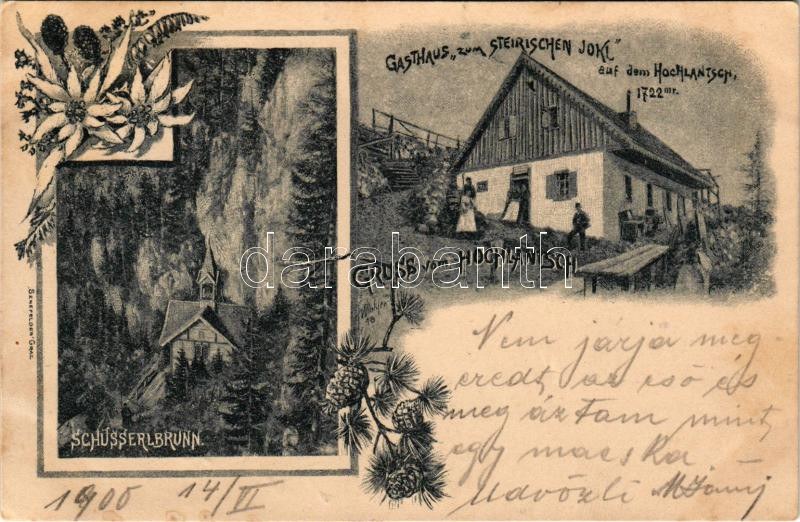 GASTHAUS „ZUM STEIRISCHEN JOKL"
auf dem HOCHLANTSCH,
1722 mr.
GRUSS vom HOCHLANTSCH
SCHÜSSERLBRUNN.
SENEFELDER-GRAZ
darabanth.com
Nem járja meg-
eredt az eső és
meg áztam mint
egy macska
Üdvözli
1900 14/VI